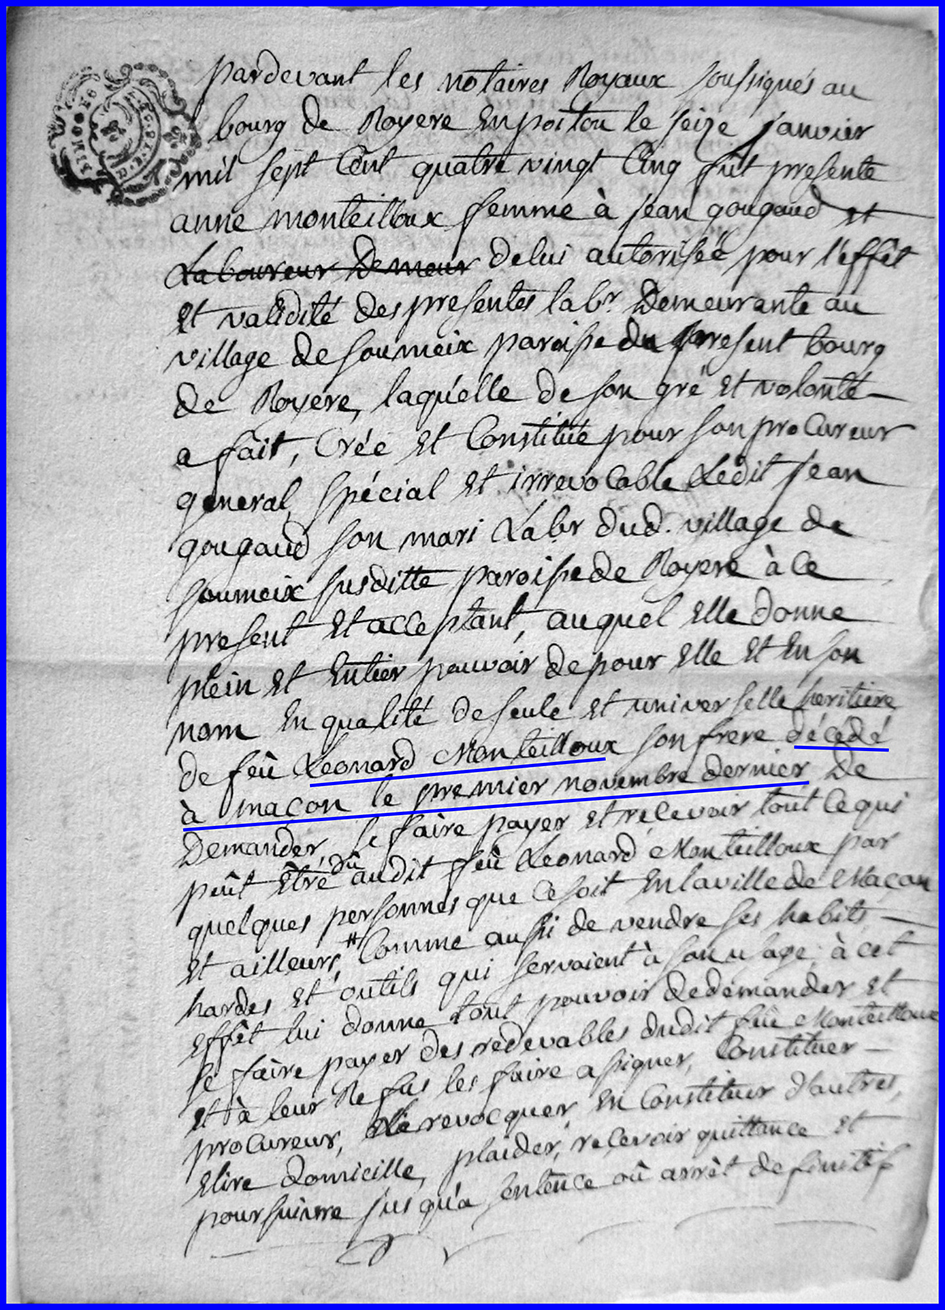 pardevant les notaires Royaux soussignés au
bourg de Royere Enpoitou le seize janvier
mil sept Cent quatre vingt Cinq fut presente
anne monteilloux femme à jean gougaud et
Laboureur Demeur delui autorisée pour l'éffét
Et validité des presentes labr. Demeurante au
village de soumeix paroisse du present bourg
de Royere, laquélle de son gré Et volonté
a fait, Crée Et Constitué pour son procureur
general, spécial et irrevocable Ledit jean
gougaud son mari Labr dud. village de
soumeix susditte paroisse de Royere à Ce
present Et acceptant, auquel Elle donne
plein Et Entier pouvoir de pour Elle Et En son
nom En qualité de seule Et universelle heritiere
de feû Leonard Monteilloux son frere décédé
à macon le premier novembre dernier De
Demander, se faire payer Et recevoir tout Ce qui
peût Etre dû audit feû Leonard Monteilloux par
quelques personnes que Ce soit En la ville de Macon
Et ailleurs, # Comme aussi de vendre ses habits
hardes Et outils qui servaient à son usage, à cet
effét lui donne tout pouvoir de demander Et
se faire payer des redevables dudit feûe Monteilloux
Et à leur Refus les faire assigner, Constituer
procureur, revocquer, En Constituer d'autres,
Elire domicille, plaider, recevoir quittance Et
poursuivre jusqu'a sentence où arrêt definitif